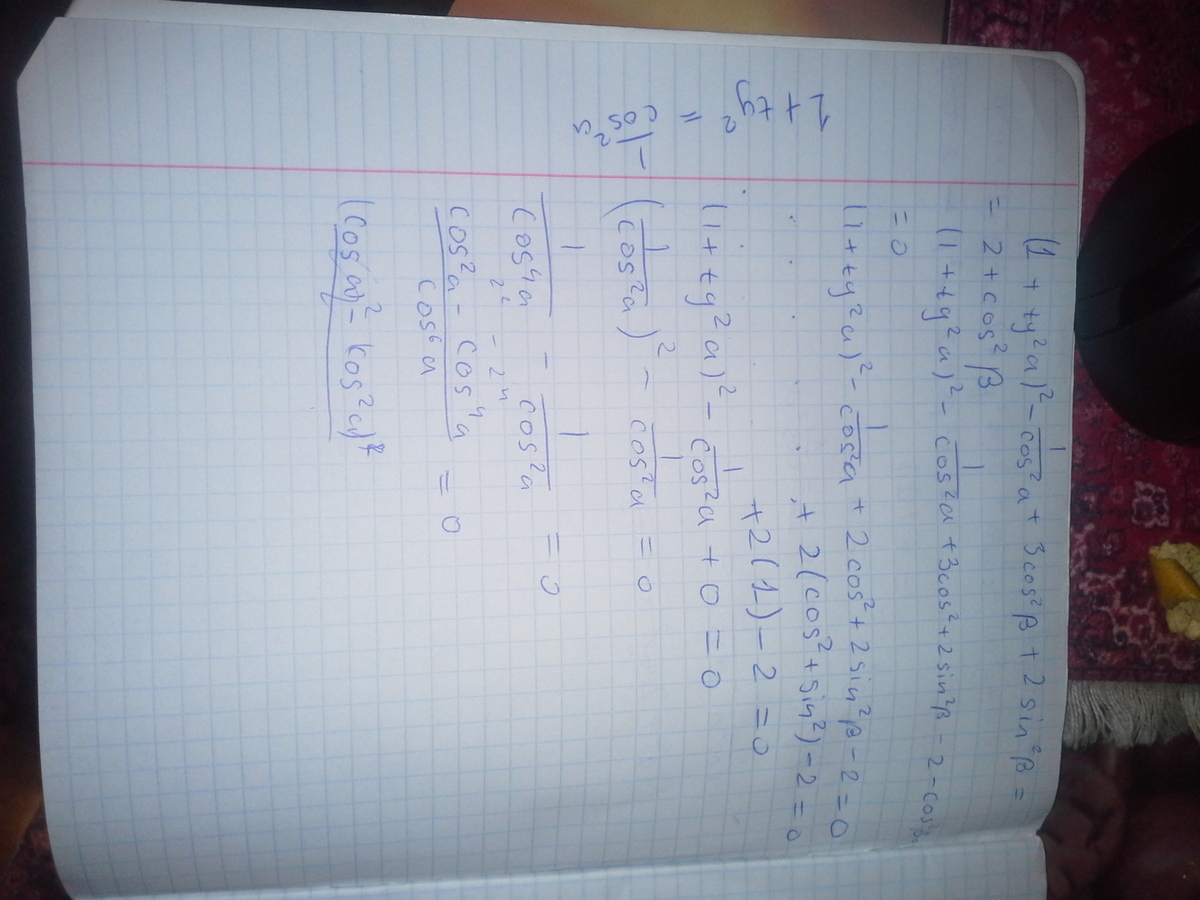 (1 + tg²a)² - 1/cos²a + 3cos²β + 2 sin²β =
= 2 + cos²β
(1 + tg²a)² - 1/cos²a + 3cos² + 2sin²β - 2 - cos²β
= 0
(1 + tg²a)² - 1/cos²a + 2cos² + 2sin²β - 2 = 0
+ 2(cos² + sin²) - 2 = 0
+ 2(1) - 2 = 0
(1 + tg²a)² - 1/cos²a + 0 = 0
(1/cos²a)² - 1/cos²a = 0
1/cos⁴a - 1/cos²a = 0
2² - 2⁴
cos²a - cos⁴a / cos⁶a = 0
(cos a)² - (cos²a)²
1 + tg² = 1/cos²